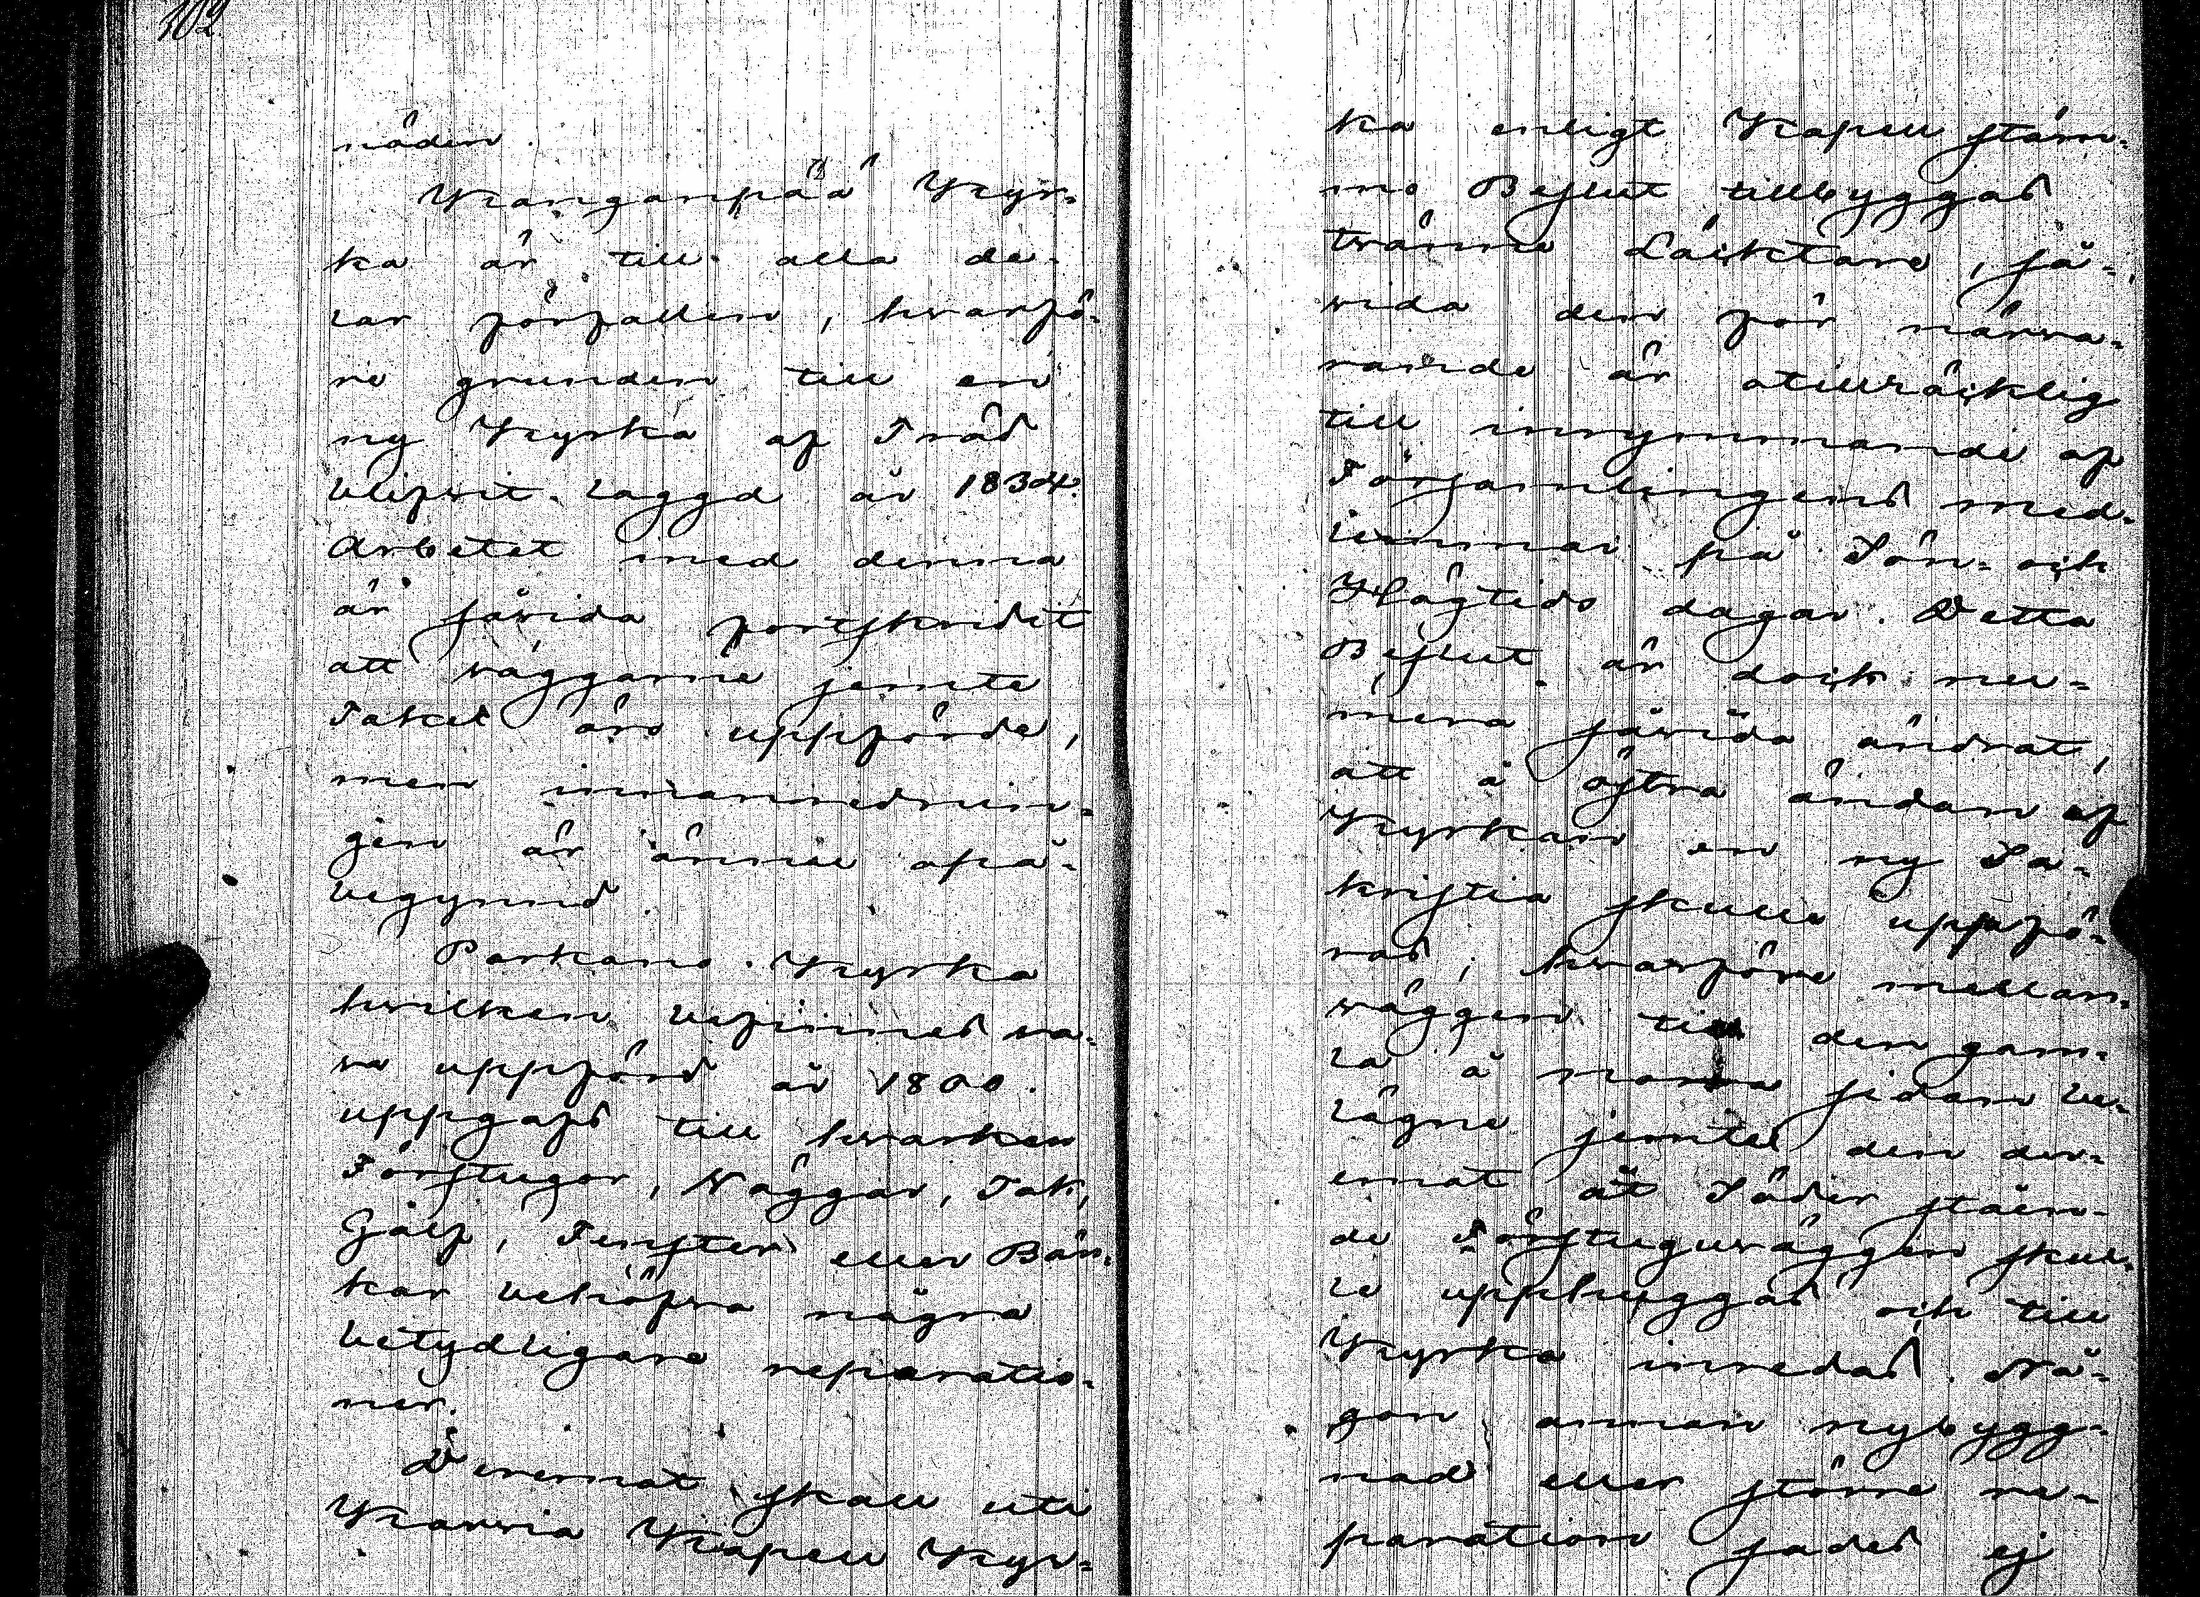 102.
nåden.
Kanganpää Kyr-
ka är till alla de-
lar förfallen, hvarfö-
re grunden till en
ny Kyrka af Träd
blifvit laggd år 1834.
Arbetet med denna
är såvida fortskridit
att väggarne jemte
Taket äro uppförde,
men innanrednin-
gen är ännu opå-
begynnd.
Parkano Kyrka
hvilken befinnes va-
ra uppförd år 1800.
uppgafs till hvarken
Förstugor, Väggar, Tak,
Golf, Fenster eller Bän-
kar behöfva några
betydligare reparatio-
ner.
Deremot skall uti
Karvia Kapell Kyr-
ka enligt Kapell stäm-
mo Beslut tillbyggas
tvänne Läcktare, så-
vida den för närva-
rande är otillräcklig
till inrymmande af
Församlingens med-
lemmar på Sön- och
Högtids dagar. Detta
Beslut är dock nu-
mera såvida ändrat,
att å östra ändan af
Kyrkan en ny Sa-
kristia skulle uppfö-
ras, hvarföre mellan-
väggen till den gam-
la å norra sidan be-
lägne jemte den der-
emot åt Söder ståen-
de Förstuguväggen skul-
le uppbyggas och till
Kyrka inredas. Nå-
gon annan nybygg-
nad eller större re-
paration sades ej